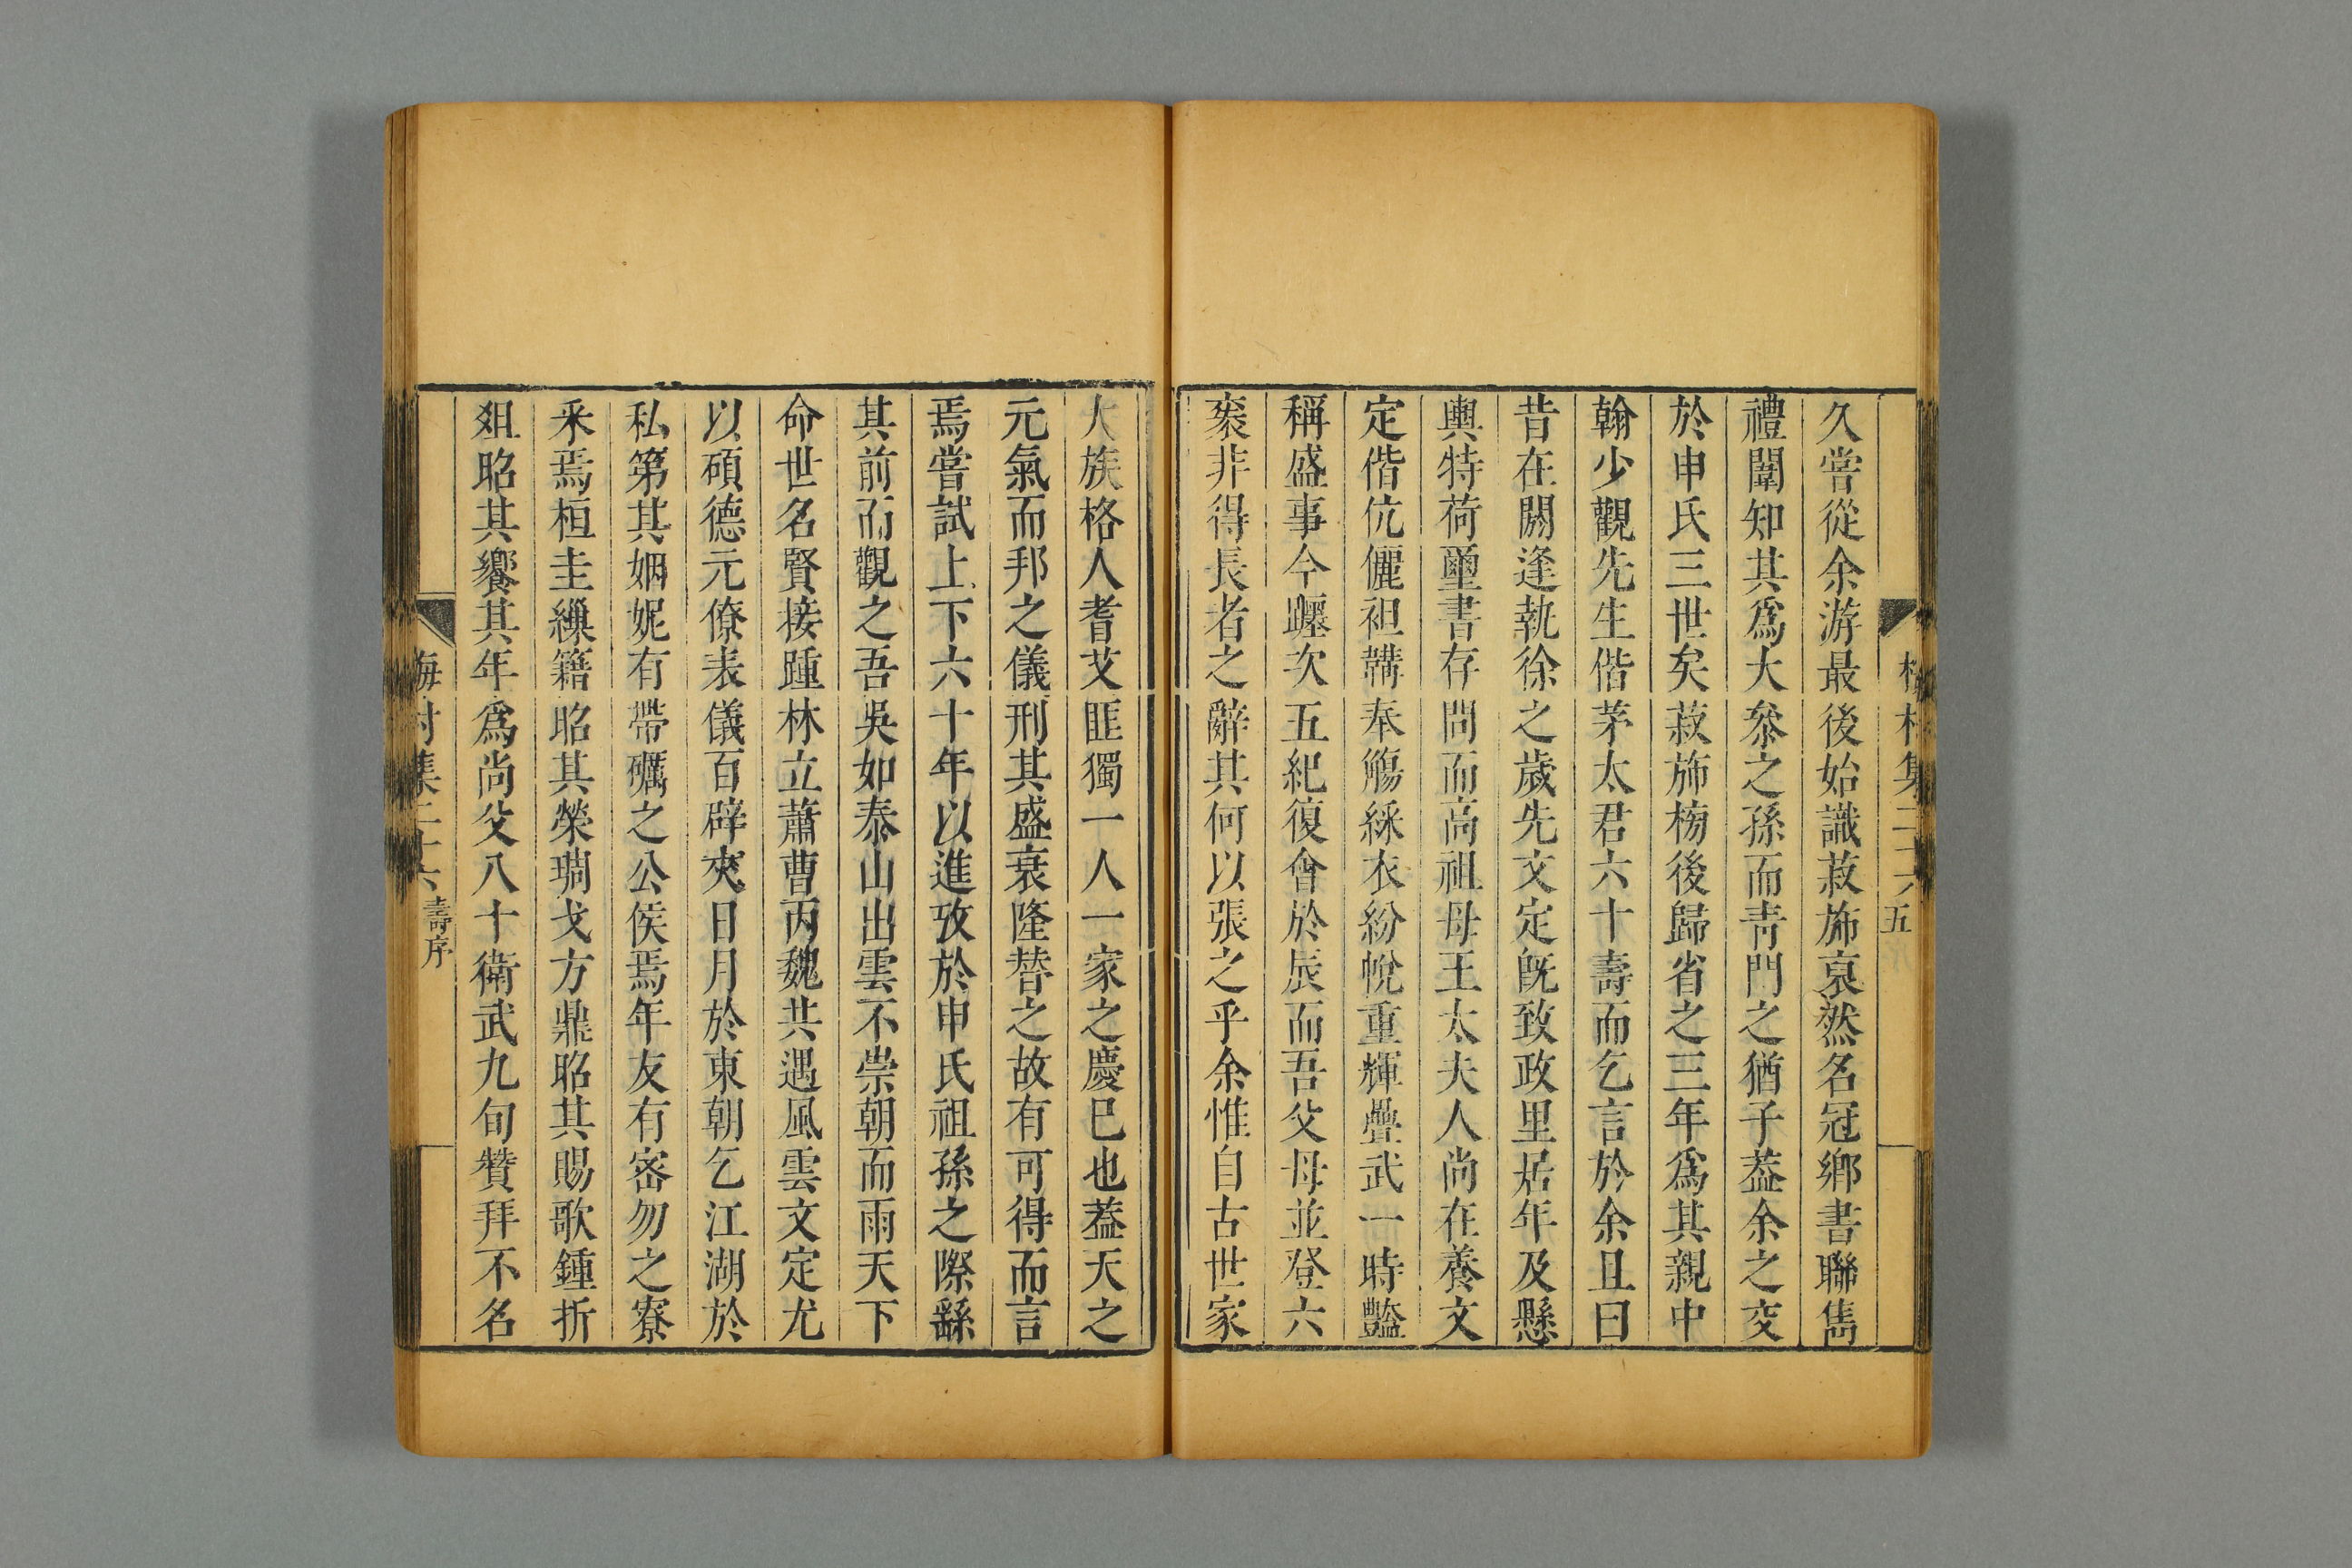 久嘗從余游最後始識菽斾裒然名冠鄉書聯雋
禮闈知其爲大叅之孫而青門之猶子葢余之交
於申氏三世矣菽斾榜後歸省之三年爲其親中
翰少觀先生偕茅太君六十壽而乞言於余且曰
昔在閼逢執徐之歲先文定旣致政里居年及懸
輿特荷璽書存問而高祖母王太夫人尚在養文
定偕伉儷袒韝奉觴綵衣紛帨重輝疊武一時豔
稱盛事今躔次五紀復會於辰而吾父母並登六
袠非得長者之辭其何以張之乎余惟自古世家
大族格人耆艾匪獨一人一家之慶巳也葢天之
元氣而邦之儀刑其盛衰隆替之故有可得而言
焉嘗試上下六十年以進攷於申氏祖孫之際繇
其前而觀之吾吳如泰山出雲不崇朝而雨天下
命世名賢接踵林立蕭曹丙魏共遇風雲文定尤
以碩德元僚表儀百辟夾日月於東朝乞江湖於
私第其姻妮有帶礪之公侯焉年友有密勿之寮
釆焉桓圭繅籍昭其榮琱戈方鼎昭其賜歌鍾折
俎昭其饗其年爲尚父八十衛武九旬贊拜不名
梅村集二十六 壽序